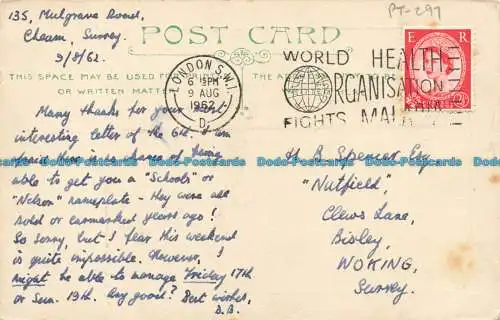 135, Mulgrave Road,
Cheam, Surrey.
9/8/62.
PT-297
POST CARD
THIS SPACE MAY BE USED FOR
OR WRITTEN MATTER
THE AD
LONDON S.W.1.
6 PM
9 AUG
1962
D
WORLD HEALTH
ORGANISATION
FIGHTS MALARIA
E R
Many thanks for your
interesting letter of the 6th. I am
afraid there is no chance of being
able to get you a "Schools" or
"Nelson" nameplate - they were all
sold or earmarked years ago!
So sorry, but I fear this weekend
is quite impossible. However, I
might be able to manage Friday 17th
or Sun. 19th. Any good? Best wishes,
D.B.
H B Spencer Esq
"Nutfield",
Clews Lane,
Bisley,
WOKING,
Surrey.
Dodo-Postcards Dodo-Postcards Dodo-Postcards Dodo-Postcards